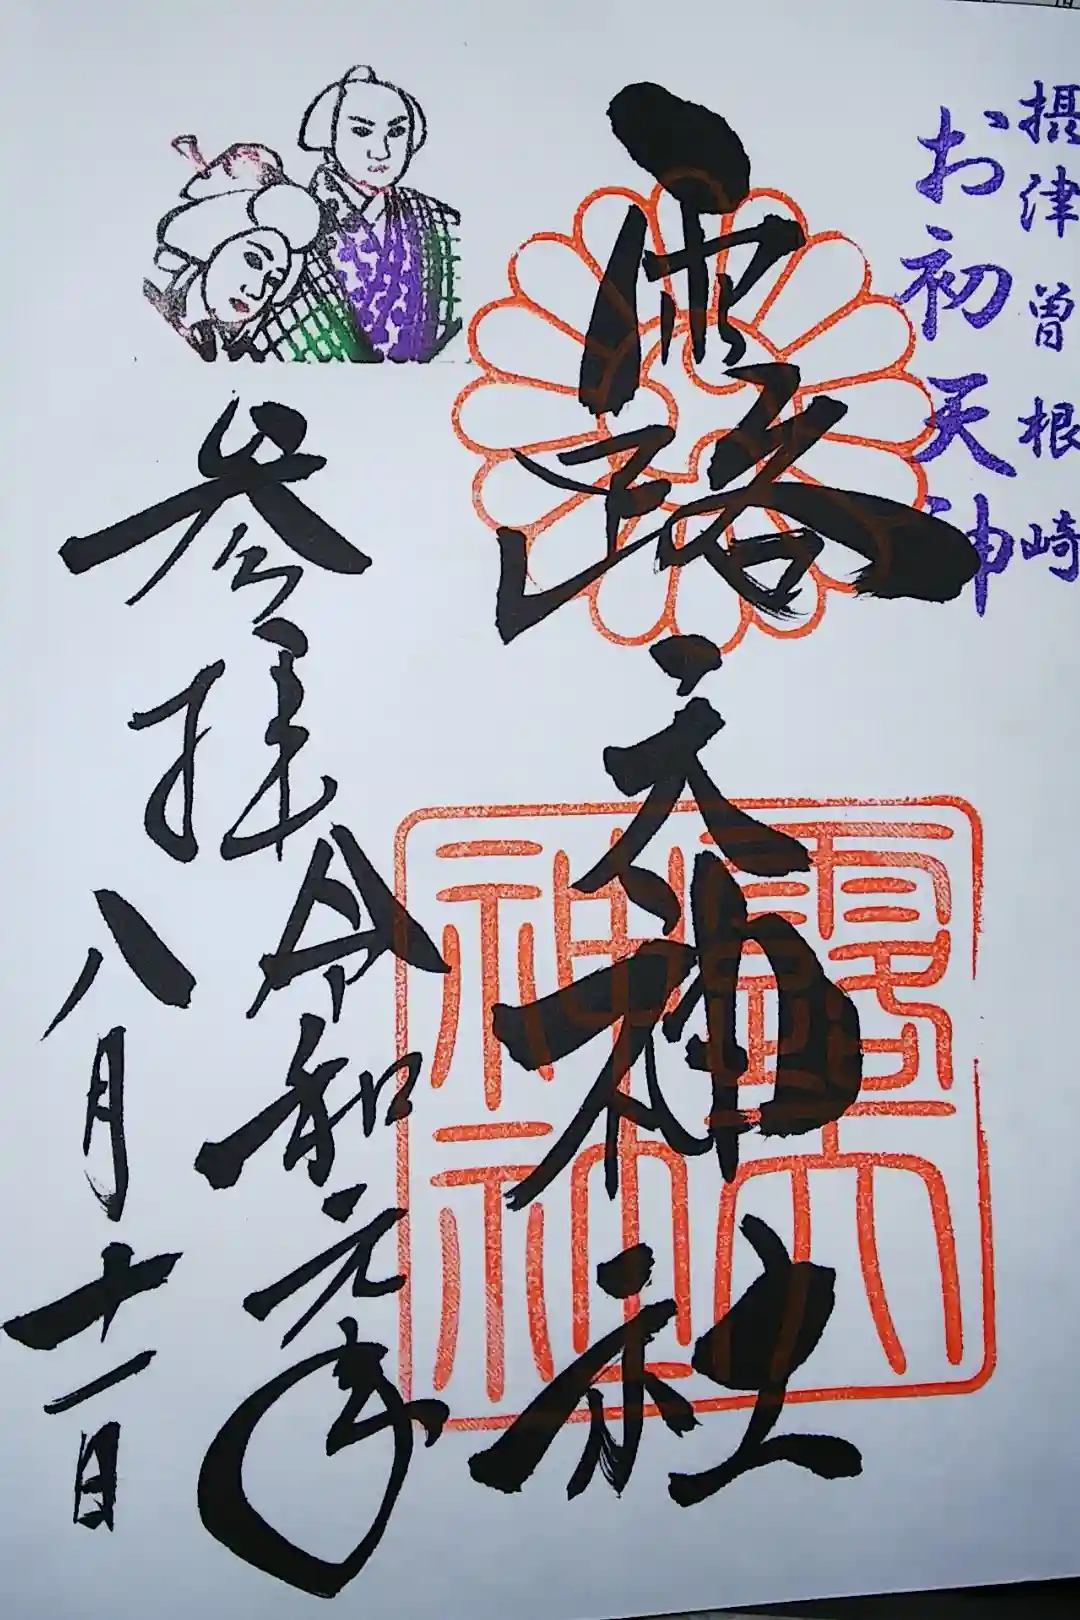 摂津曽根崎
お初天神
露天神社
露天神社
参拝
令和元年
八月十一日